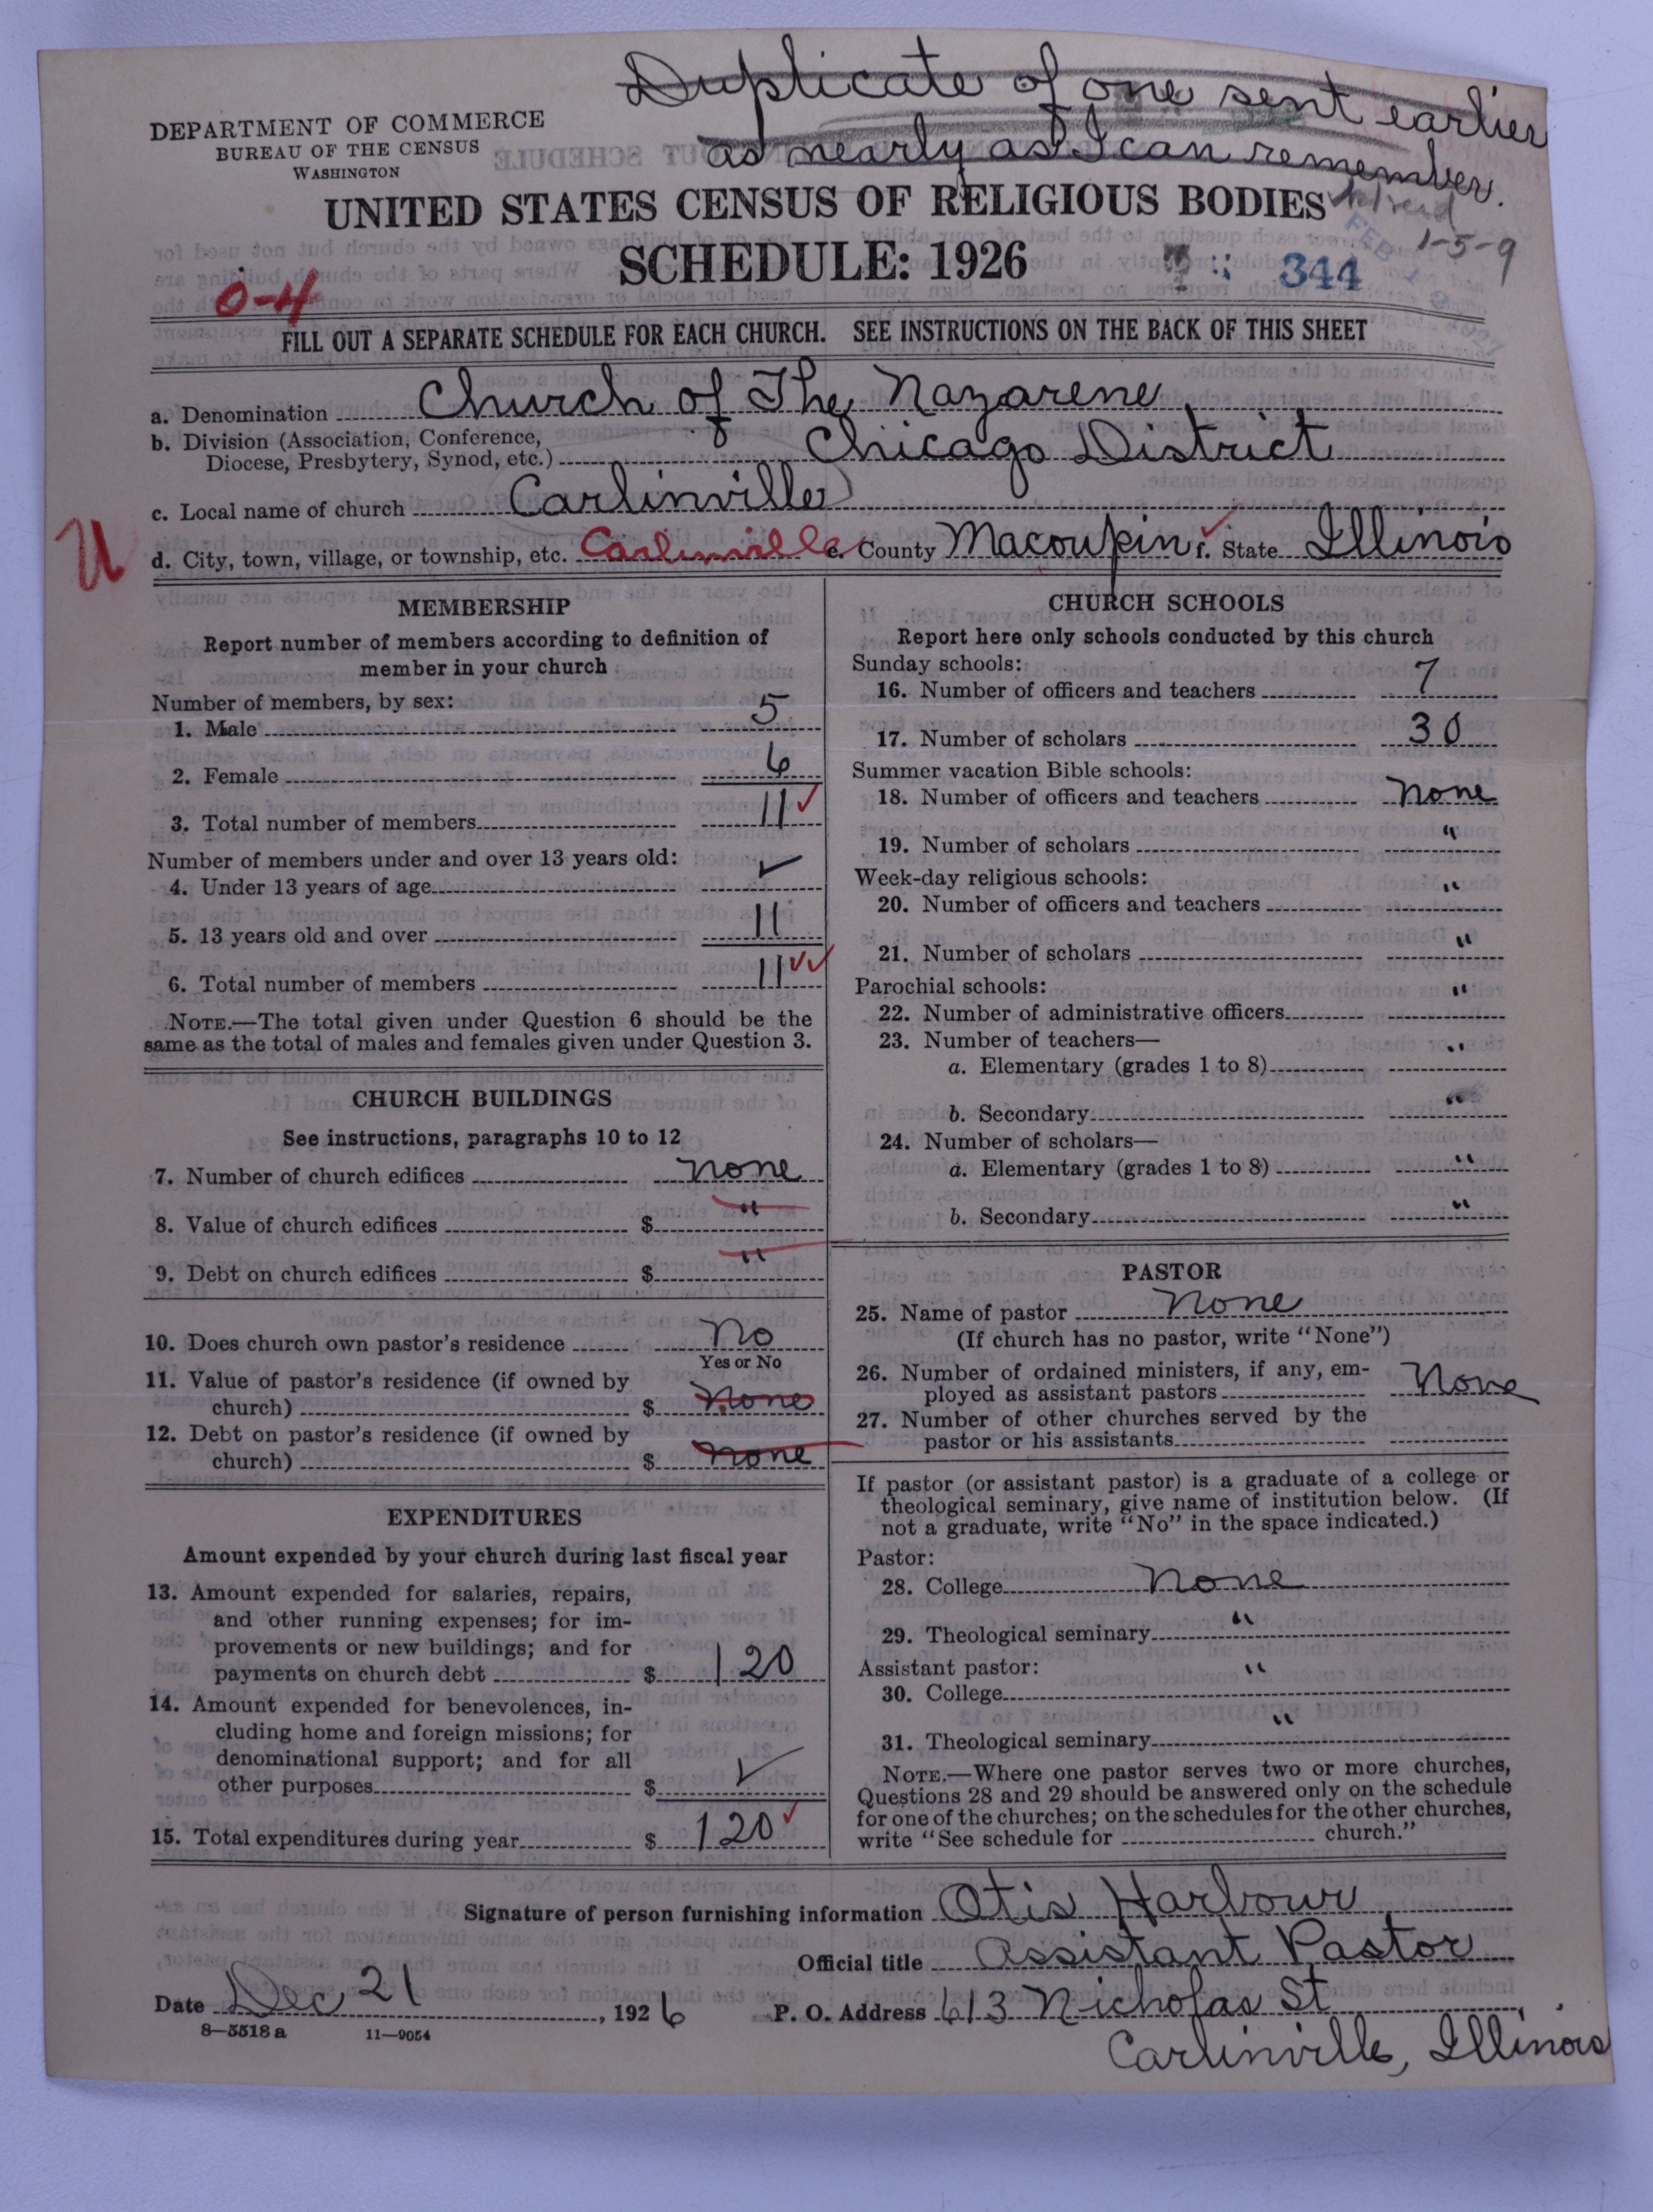 Duplicate of one sent earlier
as nearly as I can remember.
DEPARTMENT OF COMMERCE
BUREAU OF THE CENSUS
WASHINGTON
UNITED STATES CENSUS OF RELIGIOUS BODIES
SCHEDULE: 1926
1-5-9
344
0-4
FILL OUT A SEPARATE SCHEDULE FOR EACH CHURCH. SEE INSTRUCTIONS ON THE BACK OF THIS SHEET
a. Denomination Church of The Nazarene
b. Division (Association, Conference,
Diocese, Presbytery, Synod, etc.) Chicago District
c. Local name of church Carlinville
U
d. City, town, village, or township, etc. Carlinville e. County Macoupin f. State Illinois
MEMBERSHIP
Report number of members according to definition of
member in your church
Number of members, by sex:
1. Male 5
2. Female 6
3. Total number of members 11 ✓
Number of members under and over 13 years old:
4. Under 13 years of age ✓
5. 13 years old and over 11
6. Total number of members 11 ✓✓
NOTE.—The total given under Question 6 should be the
same as the total of males and females given under Question 3.
CHURCH BUILDINGS
See instructions, paragraphs 10 to 12
7. Number of church edifices none
8. Value of church edifices $ "
9. Debt on church edifices $ "
10. Does church own pastor's residence No
Yes or No
11. Value of pastor's residence (if owned by
church) $ none
12. Debt on pastor's residence (if owned by
church) $ none
EXPENDITURES
Amount expended by your church during last fiscal year
13. Amount expended for salaries, repairs,
and other running expenses; for im-
provements or new buildings; and for
payments on church debt $ 120
14. Amount expended for benevolences, in-
cluding home and foreign missions; for
denominational support; and for all
other purposes $ ✓
15. Total expenditures during year $ 120 ✓
CHURCH SCHOOLS
Report here only schools conducted by this church
Sunday schools:
16. Number of officers and teachers 7
17. Number of scholars 30
Summer vacation Bible schools:
18. Number of officers and teachers none
19. Number of scholars "
Week-day religious schools:
20. Number of officers and teachers "
21. Number of scholars "
Parochial schools:
22. Number of administrative officers "
23. Number of teachers—
a. Elementary (grades 1 to 8) "
b. Secondary "
24. Number of scholars—
a. Elementary (grades 1 to 8) "
b. Secondary "
PASTOR
25. Name of pastor None
(If church has no pastor, write "None")
26. Number of ordained ministers, if any, em-
ployed as assistant pastors None
27. Number of other churches served by the
pastor or his assistants
If pastor (or assistant pastor) is a graduate of a college or
theological seminary, give name of institution below. (If
not a graduate, write "No" in the space indicated.)
Pastor:
28. College none
29. Theological seminary "
Assistant pastor:
30. College "
31. Theological seminary "
NOTE.—Where one pastor serves two or more churches,
Questions 28 and 29 should be answered only on the schedule
for one of the churches; on the schedules for the other churches,
write "See schedule for church."
Signature of person furnishing information Otis Harbour
Official title Assistant Pastor
Date Dec 21, 1926 P. O. Address 613 Nicholas St
Carlinville, Illinois
8—5518 a 11—9054